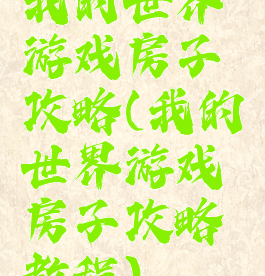 我的世界
游戏房子
攻略(我的
世界游戏
房子攻略
教程)